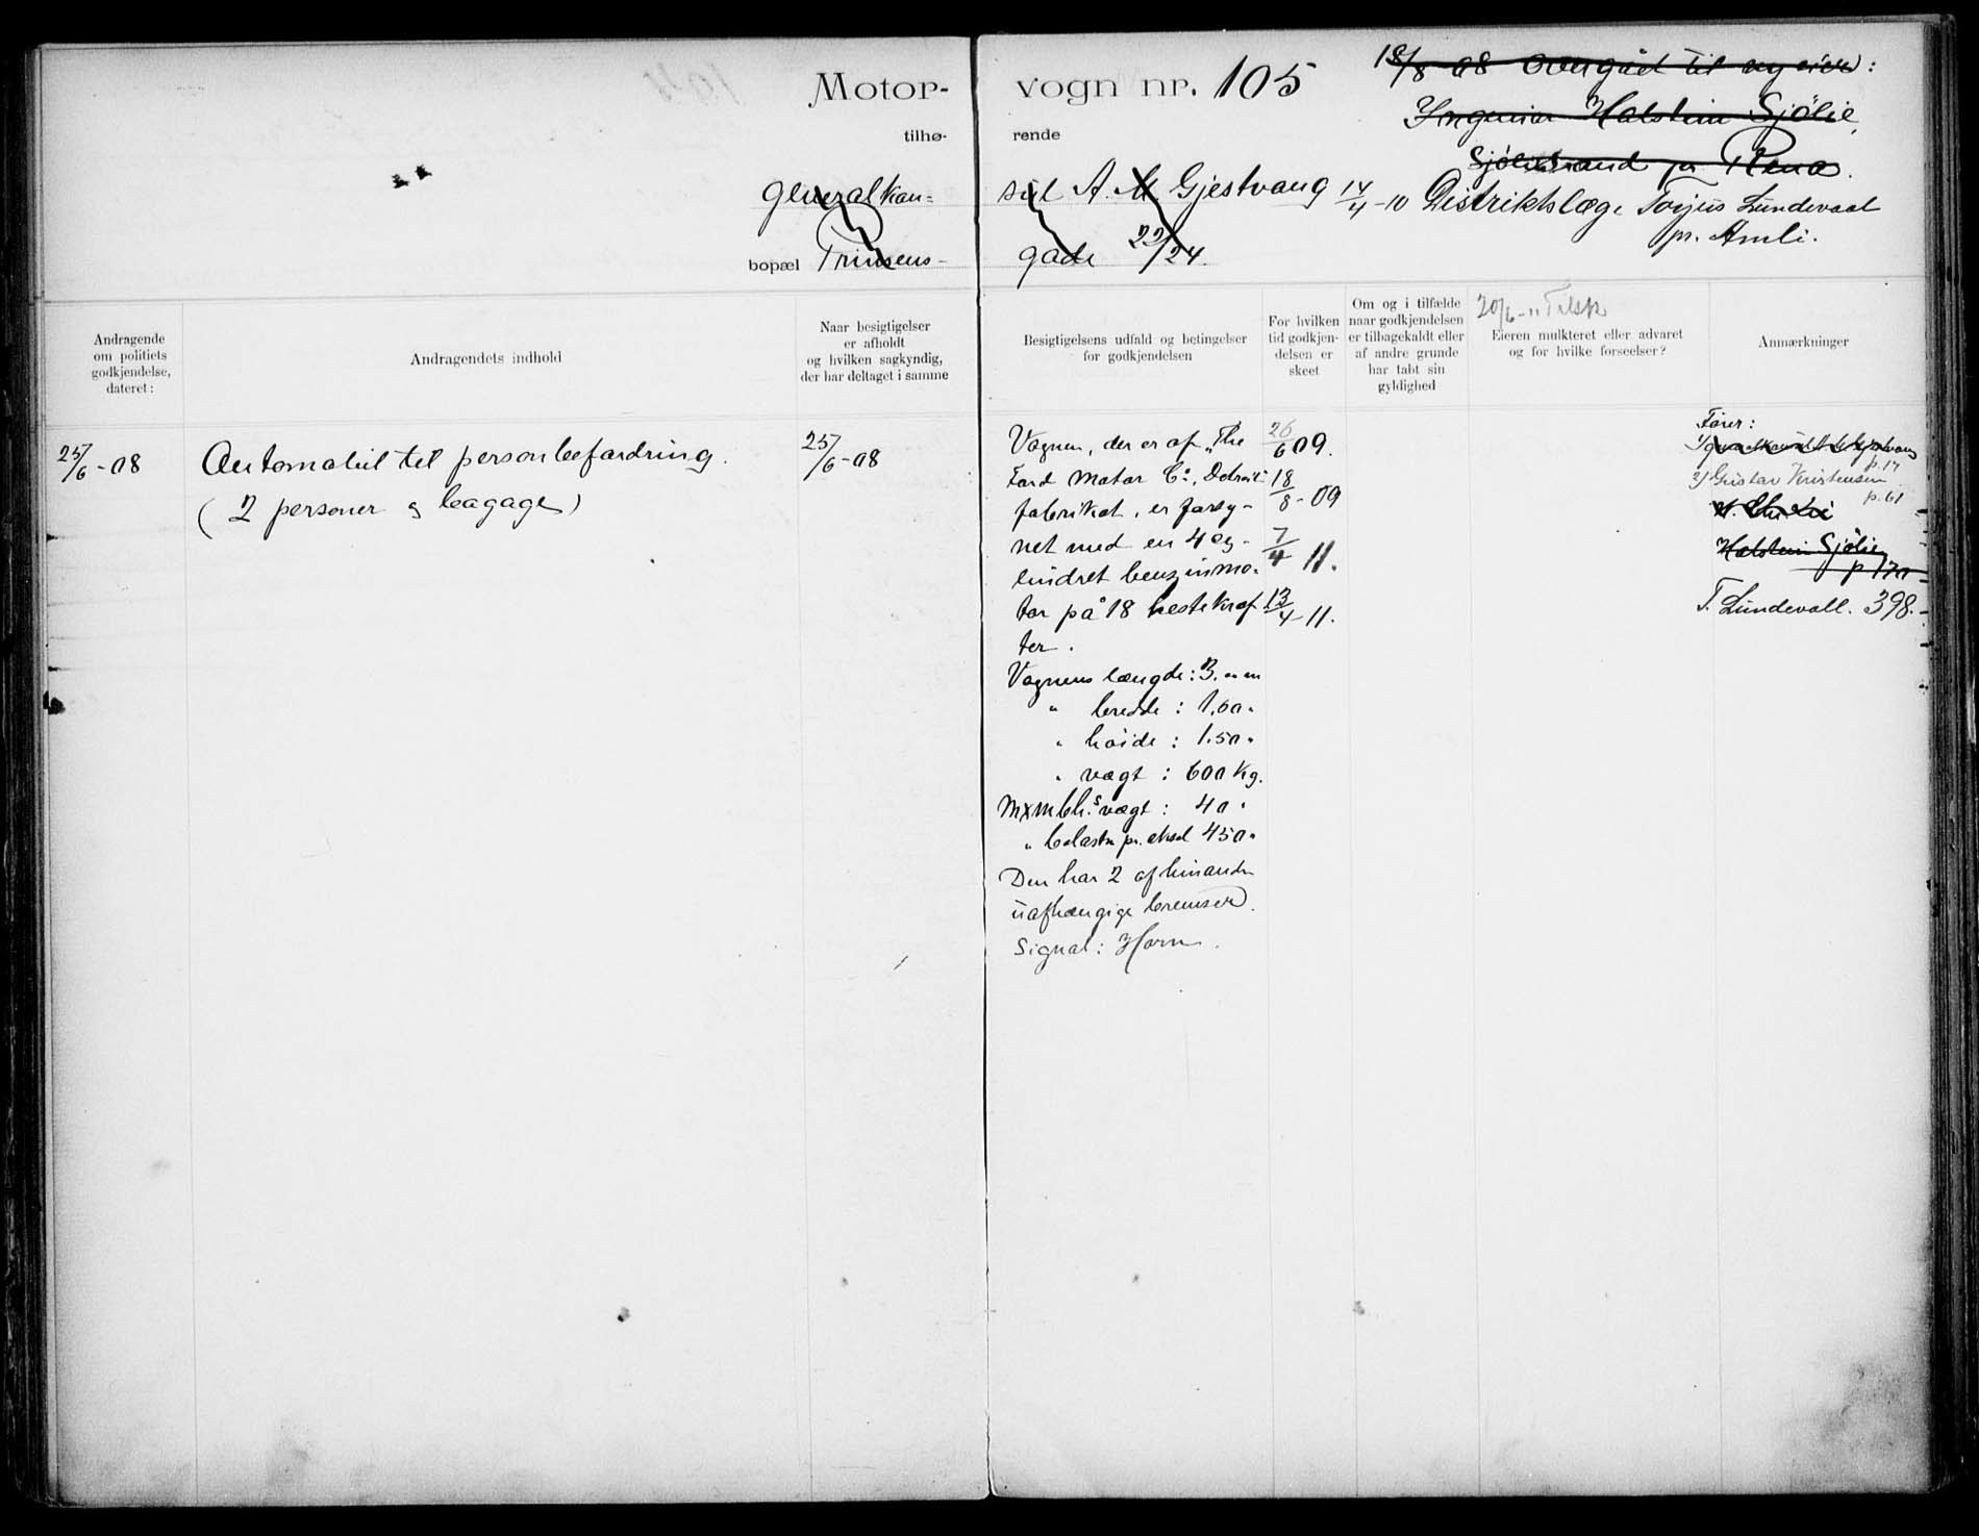 Motor-vogn nr. 105
tilhø-rende
generalkon=sul A. M Gjestvang
bopæl Prinsens-gade 22/24.
18/8 08 overgået til ny eier:
Ingeniør Halstein Sjölie,
Sjölistrand pr Rena.
14/4-10 Distriktslæge Torjus Lundevall
pr. Amli.
20/6-11 Tilsk
Andragende
om politiets
godkjendelse,
dateret:
Andragendets indhold
Naar besigtigelser
er afholdt
og hvilken sagkyndig,
der har deltaget i samme
Besigtigelsens udfald og betingelser
for godkjendelsen
For hvilken
tid godkjen-
delsen er
skeet
Om og i tilfælde
naar godkjendelsen
er tilbagekaldt eller
af andre grunde
har tabt sin
gyldighed
Eieren mulkteret eller advaret
og for hvilke forseelser?
Anmærkninger
25/6-08
Automobil til personbefordring.
(2 personer og bagage)
25/6-08
Vognen, der er af "The
Ford Motor Co., Detroit
fabrikat, er forsy-
net med en 4 cy-
lindret benzinmo-
tor på 18 hestekræf
ter.
Vognens længde: 3.00 m
" bredde: 1,60 "
" höide: 1.50 "
" vægt: 600 kg.
" vægt: 40 "
" belastn pr. aksel 450 "
Den har 2 af hinanden
uafhængige bremser.
Signal: Horn.
26/6 09.
18/8-09
7/4 11.
13/4-11.
Fører:
1/
p. 17
2/ Gustav Kristensen
p. 61
Halstein Sjölie
p 170
T. Lundevall. 398.